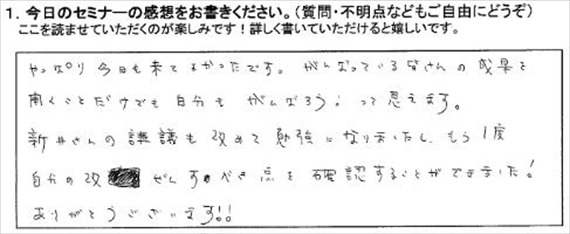 1. 今日のセミナーの感想をお書きください。(質問・不明点などもご自由にどうぞ)
ここを読ませていただくのが楽しみです！詳しく書いていただけると嬉しいです。
やっぱり今日も来てよかったです。がんばっている皆さんの成果を
聞くことだけでも自分も がんばろう！って思えます。
新井さんの講議も改めて勉強になりましたし、もう1度
自分の改ぜんすべき点を確認することができました！
ありがとうございます!!